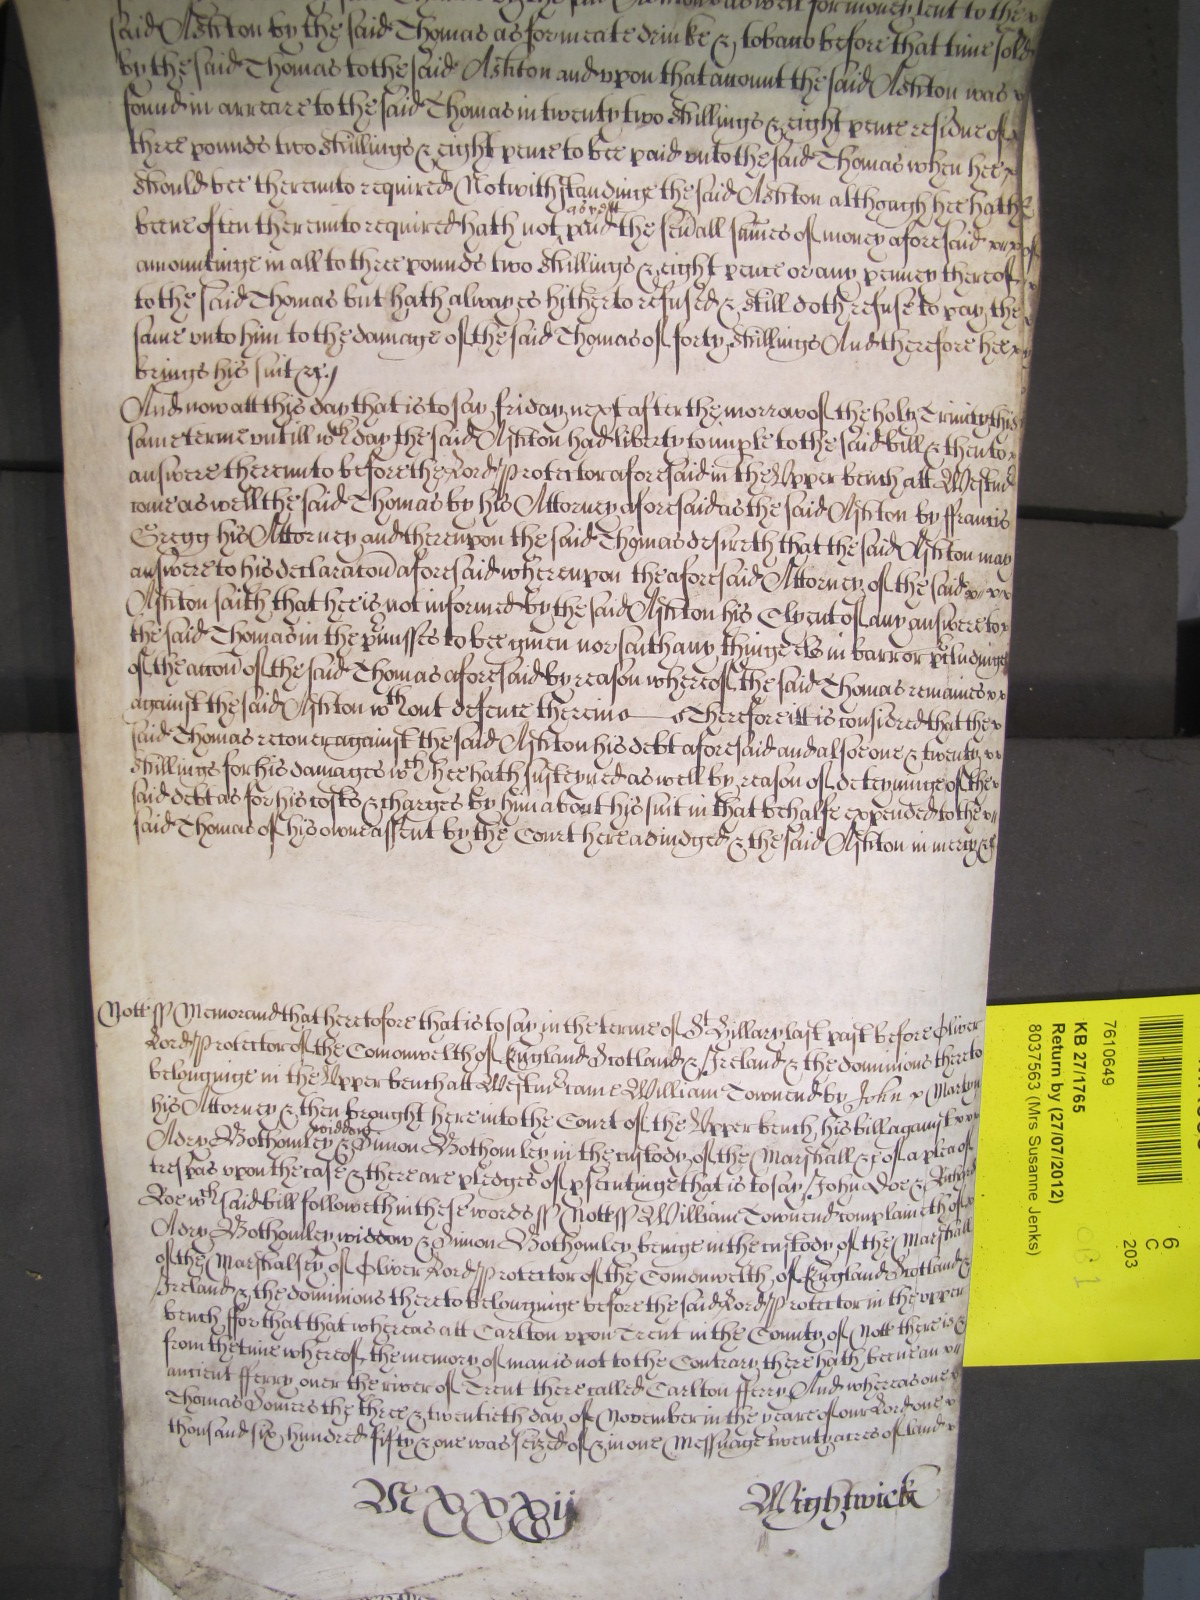 said Ashton by the said Thomas as for meate drinke & tobacco before that time sold
by the said Thomas to the said Ashton and upon that account the said Ashton was
found in arreare to the said Thomas in twenty two shillings & eight pence residue of
three pounds two shillings & eight pence to bee paid unto the said Thomas when hee
should bee thereunto required Notwithstandinge the said Ashton although hee hath
beene often thereunto required hath not paid the sevall sumes of money aforesaid
amountinge in all to three pounds two shillings & eight pence or any penney thereof
to the said Thomas but hath alwayes hitherto refused & still doth refuse to pay the
same unto him to the damage of the said Thomas of forty shillings And therefore hee
brings his suit &c
And now att this day that is to say friday next after the morrow of the holy Trinity this
same terme untill wch day the said Ashton had liberty to imple to the said bill & then to
answere thereunto before the Lord Protector aforesaid in the Upper bench att Westmr
came as well the said Thomas by his Attorney aforesaid as the said Ashton by ffrancis
Gregg his Attorney and thereupon the said Thomas desireth that the said Ashton may
answere to his declaracon aforesaid whereupon the aforesaid Attorney of the said
Ashton saith that hee is not informed by the said Ashton his Clyent of any answere to
the said Thomas in the pmisses to bee given nor saith any thinge els in barr or pcludinge
of the accon of the said Thomas aforesaid by reason whereof the said Thomas remaines
against the said Ashton wthout defence therein Therefore itt is considred that the
said Thomas recover against the said Ashton his debt aforesaid and alsoe one & twenty
shillings for his damages wch hee hath susteyned as well by reason of deteyninge of the
said debt as for his costs & charges by him about his suit in that behalfe expended to the
said Thomas of his owne assent by the Court here adiudged & the said Ashton in mercy &c
Nott ss Memorand that heretofore that is to say in the terme of St Hillary last past before Oliver
Lord Protector of the Comonwelth of England Scotland & Ireland & the dominions thereto
belonginge in the Upper bench att Westmr came William Townend by John Martyn
his Attorney & then brought here into the Court of the Upper bench his bill against
Adry Bothomley widdow & Simon Bothomley in the custody of the Marshall &c of a plea of
trespas upon the case & there are pledges of psecutinge that is to say John Doe & Richard
Roe wch said bill followeth in these words ss Nott ss William Townend complaineth of
Adry Bothomley widdow & Simon Bothomley beinge in the custody of the Marshall
of the Marshalsey of Oliver Lord Protector of the Comonwelth of England Scotland &
Ireland & the dominions thereto belonginge before the said Lord Protector in the upper
bench ffor that that whereas att Carlton upon Trent in the County of Nott there is &
from the time whereof the memory of man is not to the Contrary there hath beene an
ancient fferry over the river of Trent there called Carlton fferry And whereas one
Thomas Somers the three & twentieth day of November in the yeare of our Lord one
thousand six hundred fifty & one was seized of & in one Messuage twenty acres of land
M XXXij Wightwick
7610649
KB 27/1765
Return by (27/07/2012)
8037563 (Mrs Susanne Jenks)
6
C
203